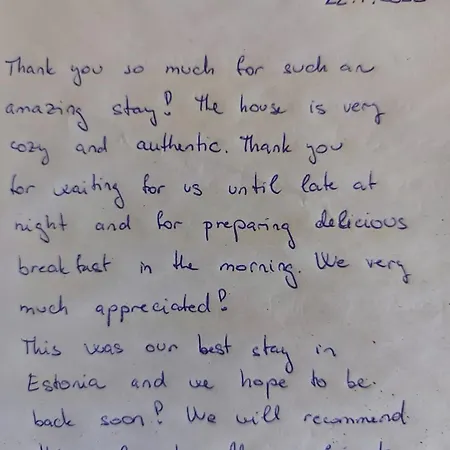 Thank you so much for such an
amazing stay! The house is very
cozy and authentic. Thank you
for waiting for us until late at
night and for preparing delicious
breakfast in the morning. We very
much appreciated!
This was our best stay in
Estonia and we hope to be
back soon! We will recommend